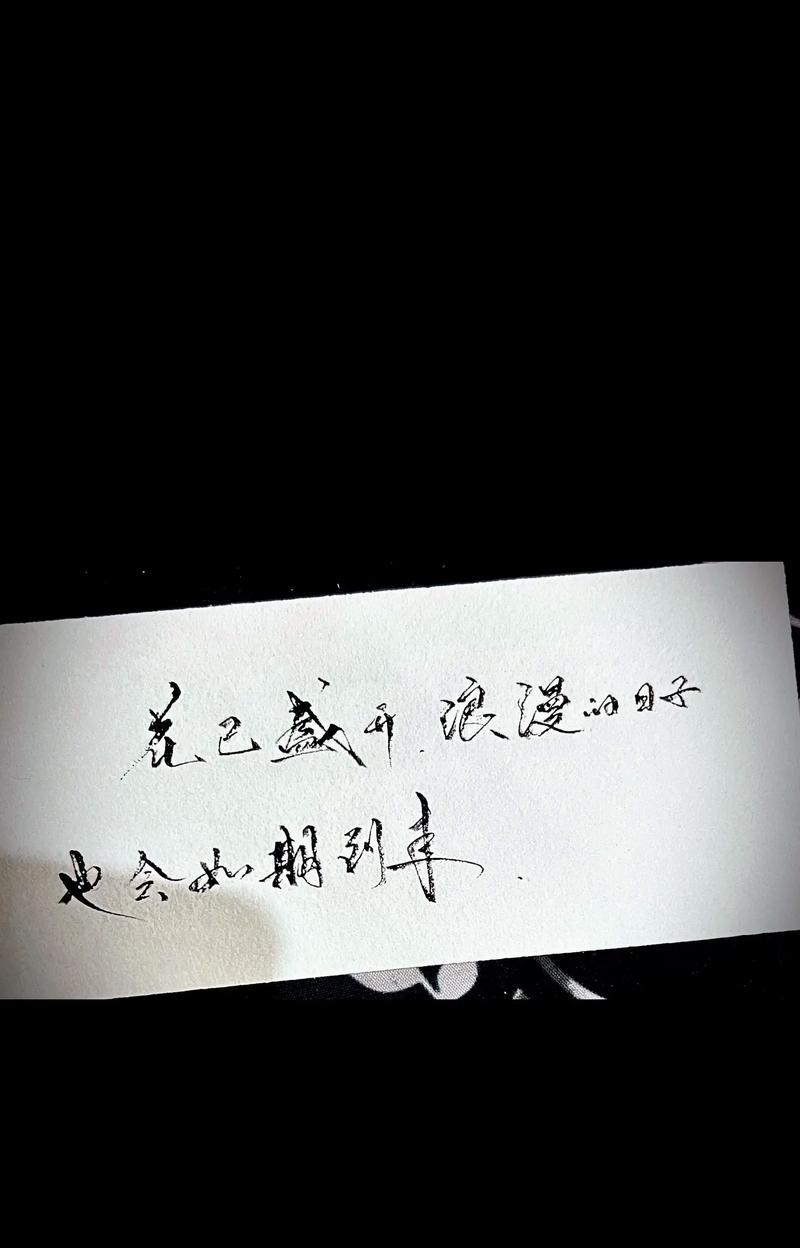 花已盛开.浪漫的日子
也会如期到来.